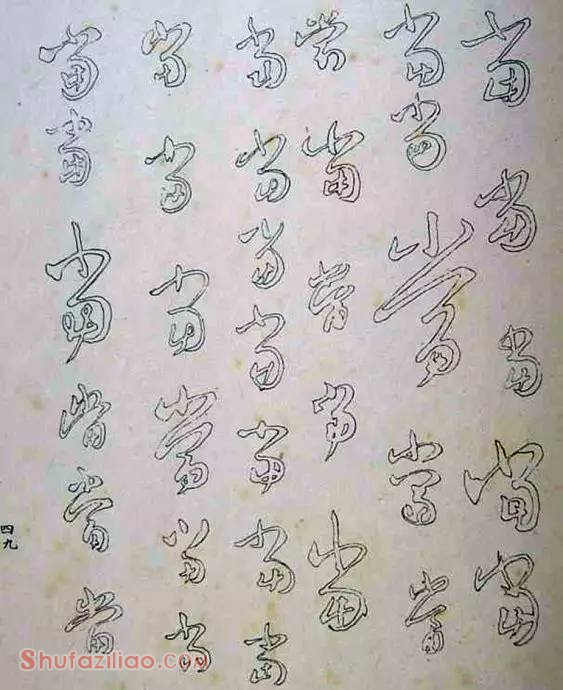 當當當當當
當當當當當
當當當當當
當當當當當當當
當當當當當當
當當當當當當
四九
Shufaziliao.com